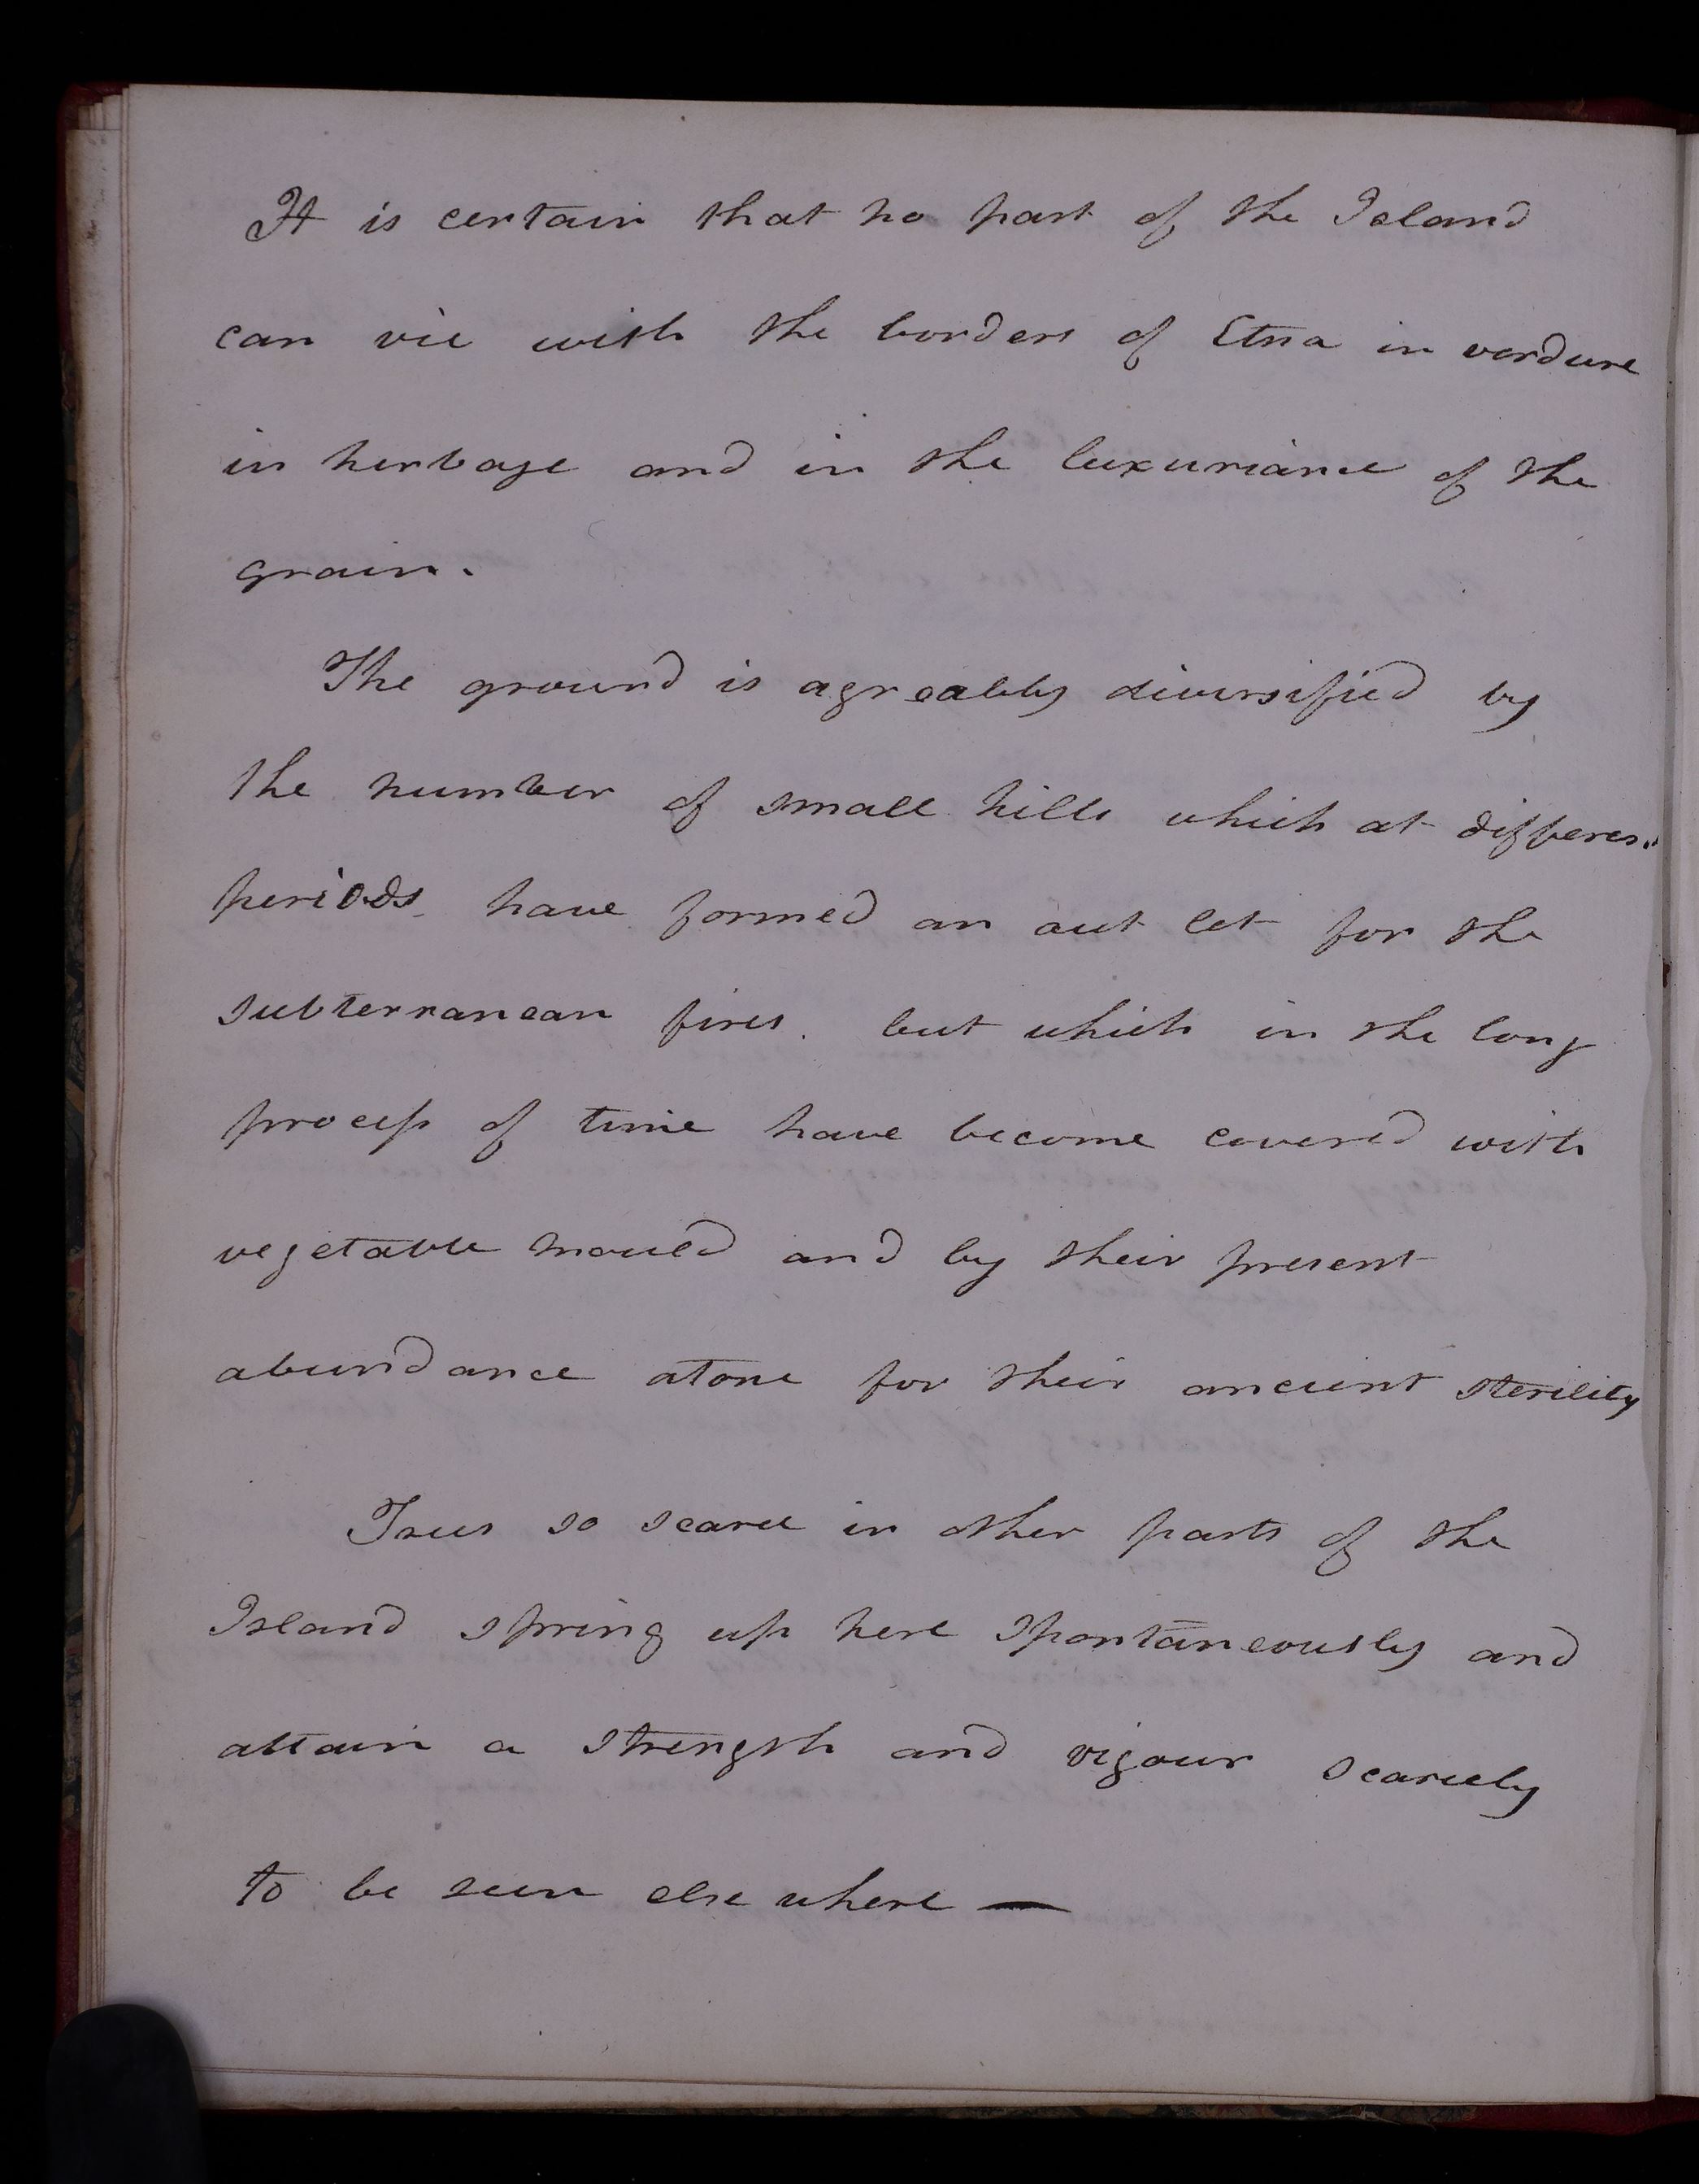 It is certain that no part of the Island
can vie with the borders of Etna in verdure
in herbage and in the luxuriance of the
grain.
The ground is agreably diversified by
the number of small hills which at different
periods have formed an out let for the
subterranean fires. but which in the long
process of time have become covered with
vegetable mould and by their present
abundance atone for their ancient sterility
Trees so scarce in other parts of the
Island spring up here spontaneously and
attain a strength and vigour scarcely
to be seen else where —